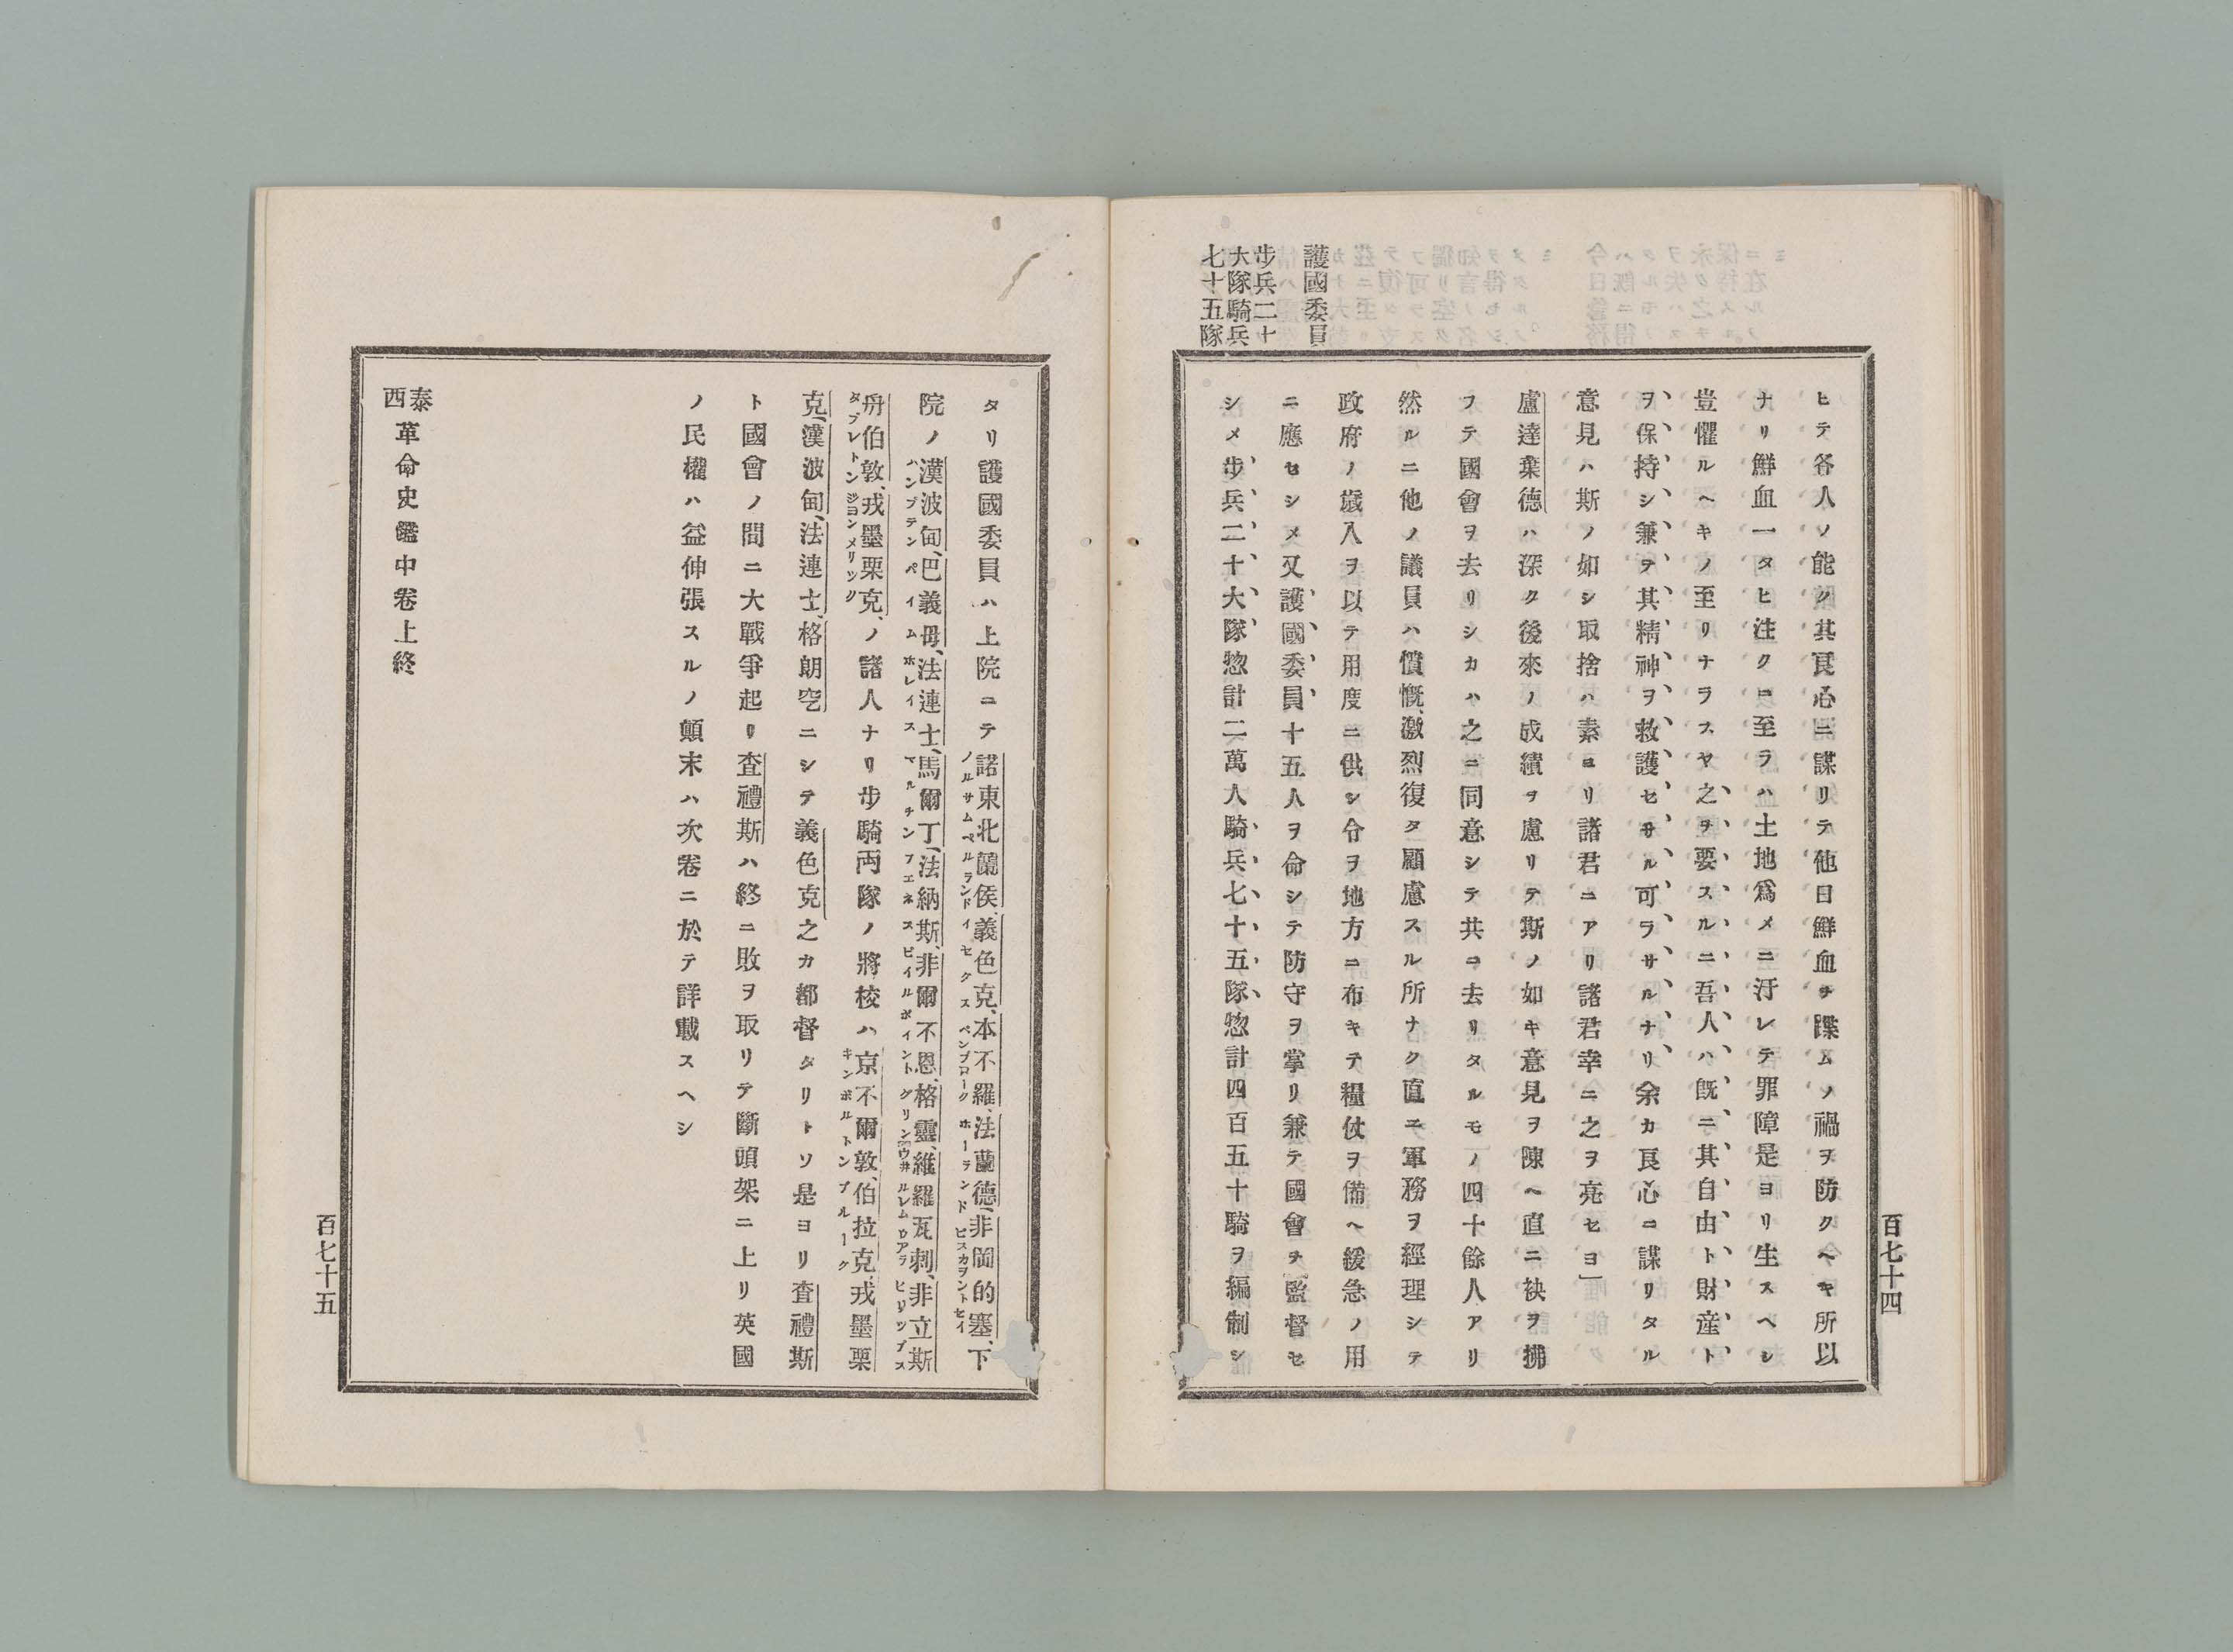 護國委員
步兵二十
大隊騎兵
七十五隊
ヒテ各人ソ能ク其良心ニ謀リテ他日鮮血ヲ蹀ムノ禍ヲ防クヘキ所以
ナリ鮮血一タヒ注クニ至ラハ土地爲メニ汙レテ罪障是ヨリ生スヘシ
豈懼ルヘキノ至リナラスヤ之ヲ要スルニ吾人ハ既ニ其自由ト財産ト
ヲ保持シ兼テ其精神ヲ救護セサル可ラサルナリ余カ良心ニ謀リタル
意見ハ斯ノ如シ取捨ハ素ヨリ諸君ニアリ諸君幸ニ之ヲ亮セヨ」
盧達葉德ハ深ク後來ノ成績ヲ慮リテ斯ノ如キ意見ヲ陳ヘ直ニ袂ヲ拂
フテ國會ヲ去リシカハ之ニ同意シテ共ニ去リタルモノ四十餘人アリ
然ルニ他ノ議員ハ憤慨激烈復タ顧慮スル所ナク直ニ軍務ヲ經理シテ
政府ノ歲入ヲ以テ用度ニ供シ令ヲ地方ニ布キテ糧仗ヲ備ヘ緩急ノ用
ニ應セシメ又護國委員十五人ヲ命シテ防守ヲ掌リ兼テ國會ヲ監督セ
シメ步兵二十大隊惣計二萬人騎兵七十五隊惣計四百五十騎ヲ編制シ
百七十四
タリ護國委員ハ上院ニテ諾東北蘭侯、義色克、本不羅、法蘭德、非岡的塞、下
ノルサムペルランド イセクス ペンブローク ホーランド ビスカヲントセイ
院ノ漢波甸、巴義毋、法連士、馬爾丁、法納斯、非爾不恩、格靈、維羅瓦刺、非立斯
ハンプテン ペイム ホレイス マルチン フエネス ビイルポイント グリン ウ井ルレムロアラ ヒリップス
舟伯敦、戎墨栗克、ノ諸人ナリ步騎両隊ノ將校ハ京不爾敦、伯拉克、戎墨栗
タプレトン ジヨンメリック キンボルトン ブルーク
克、漢波甸、法連士、格朗空ニシテ義色克之カ都督タリトソ是ヨリ査禮斯
ト國會ノ間ニ大戰爭起リ査禮斯ハ終ニ敗ヲ取リテ斷頭架ニ上リ英國
ノ民權ハ益伸張スルノ顛末ハ次卷ニ於テ詳載スヘシ
泰西革命史鑑中卷上終
百七十五